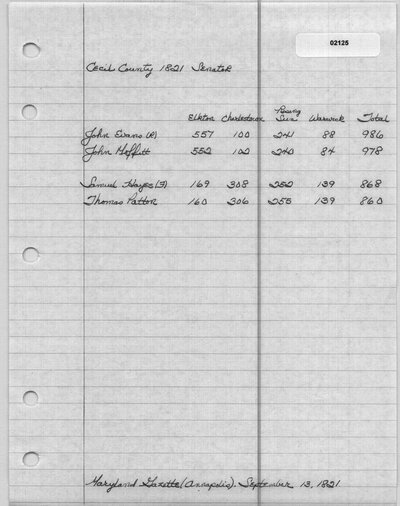 02125
Cecil County 1821 Senator
Elkton Charlestown Rising Sun Warwick Total
John Evans (R) 557 100 241 88 986
John Moffitt 552 102 240 84 978
Samuel Hayes (F) 169 308 252 139 868
Thomas Patton 160 306 255 139 860
Maryland Gazette (Annapolis). September 13, 1821.